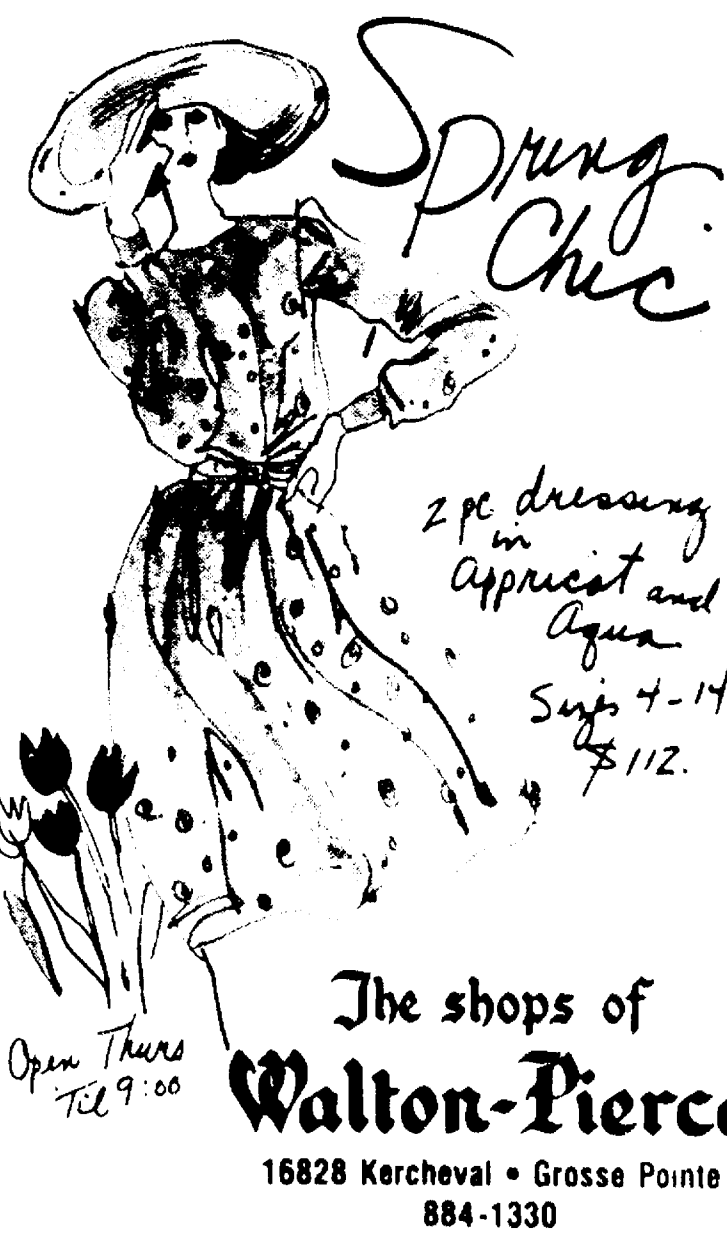 Spring
Chic
2 pc dressing
in
appricot and
Aqua
Sizes 4-14
$112.
Open Thurs
Til 9:00
The shops of
Walton-Pierce
16828 Kercheval • Grosse Pointe
884-1330